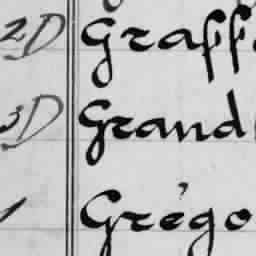 2D Graff
3D Grand
1 Grégo